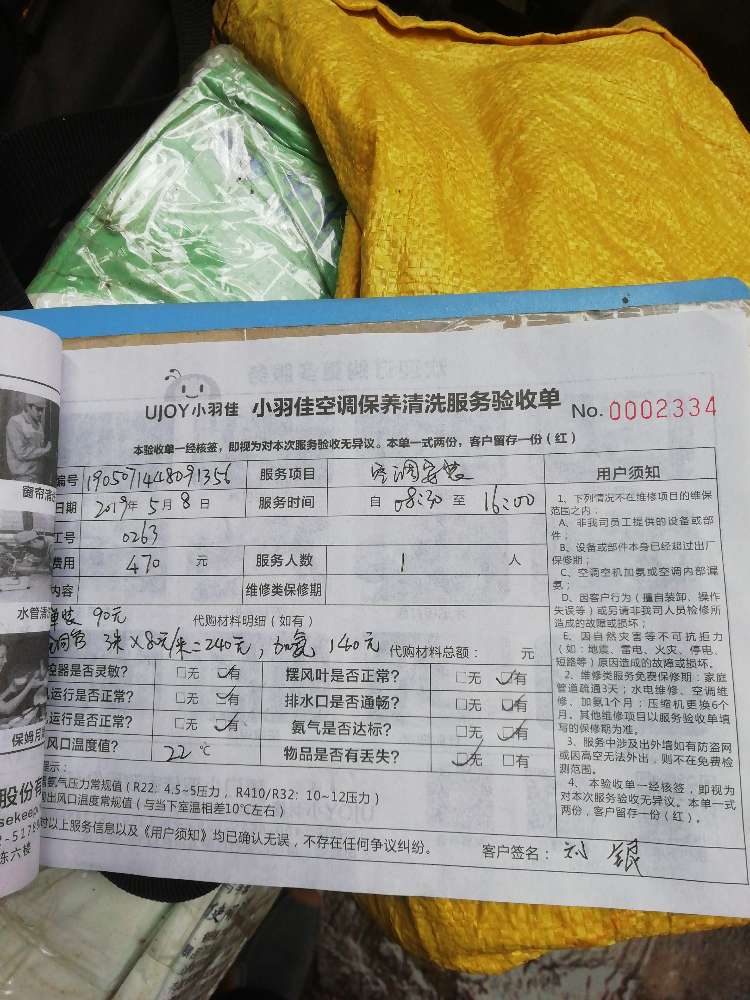 UJOY小羽佳 小羽佳空调保养清洗服务验收单 No. 0002334
本验收单一经核签，即视为对本次服务验收无异议。本单一式两份，客户留存一份（红）
编号 1905071448091356 服务项目 空调安装
日期 2019年 5月 8日 服务时间 自 08:30 至 16:00
工号 0263
费用 470 元 服务人数 1 人
内容 维修类保修期
单装 90元 代购材料明细（如有）
3米×80元/米=240元，加氨 140元 代购材料总额： 元
控器是否灵敏？ □无 ☑有 摆风叶是否正常？ □无 ☑有
运行是否正常？ □无 ☑有 排水口是否通畅？ □无 ☑有
运行是否正常？ □无 ☑有 氨气是否达标？ □无 ☑有
风口温度值？ 22 ℃ 物品是否有丢失？ ☑无 □有
提示：
氨气压力常规值（R22: 4.5~5压力， R410/R32: 10~12压力）
出风口温度常规值（与当下室温相差10℃左右）
对以上服务信息以及《用户须知》均已确认无误，不存在任何争议纠纷。 客户签名： 刘 银
用户须知
1、下列情况不在维修项目的维保
范围之内：
A、非我司员工提供的设备或部
件；
B、设备或部件本身已经超过出厂
保修期；
C、空调空机加氨或空调内部漏
氨；
D、因客户行为（擅自装卸、操作
失误等）或另请非我司人员检修所
造成的故障或损坏；
6、因自然灾害等不可抗拒力
（如：地震、雷电、火灾、停电、
短路等）原因造成的故障或损坏。
2、维修类服务免费保修期：家庭
管道疏通3天；水电维修、空调维
修、加氨1个月；压缩机更换6个
月。其他维修项目以服务验收单填
写的保修期为准。
3、服务中涉及出外墙如有防盗网
或因高空无法外出，则不在免费检
测范围。
4、本验收单一经核签，即视为
对本次服务验收无异议。本单一式
两份，客户留存一份（红）。
窗帘清
水管清
保姆月
股份有
sekeep
2-5178
东六楼